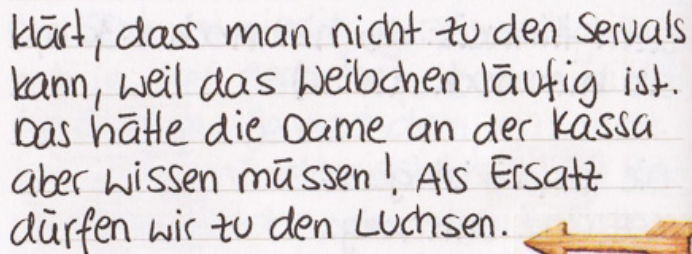 klärt, dass man nicht zu den Servals
kann, weil das Weibchen läufig ist.
Das hätte die Dame an der Kassa
aber wissen müssen! Als Ersatz
dürfen wir zu den Luchsen.